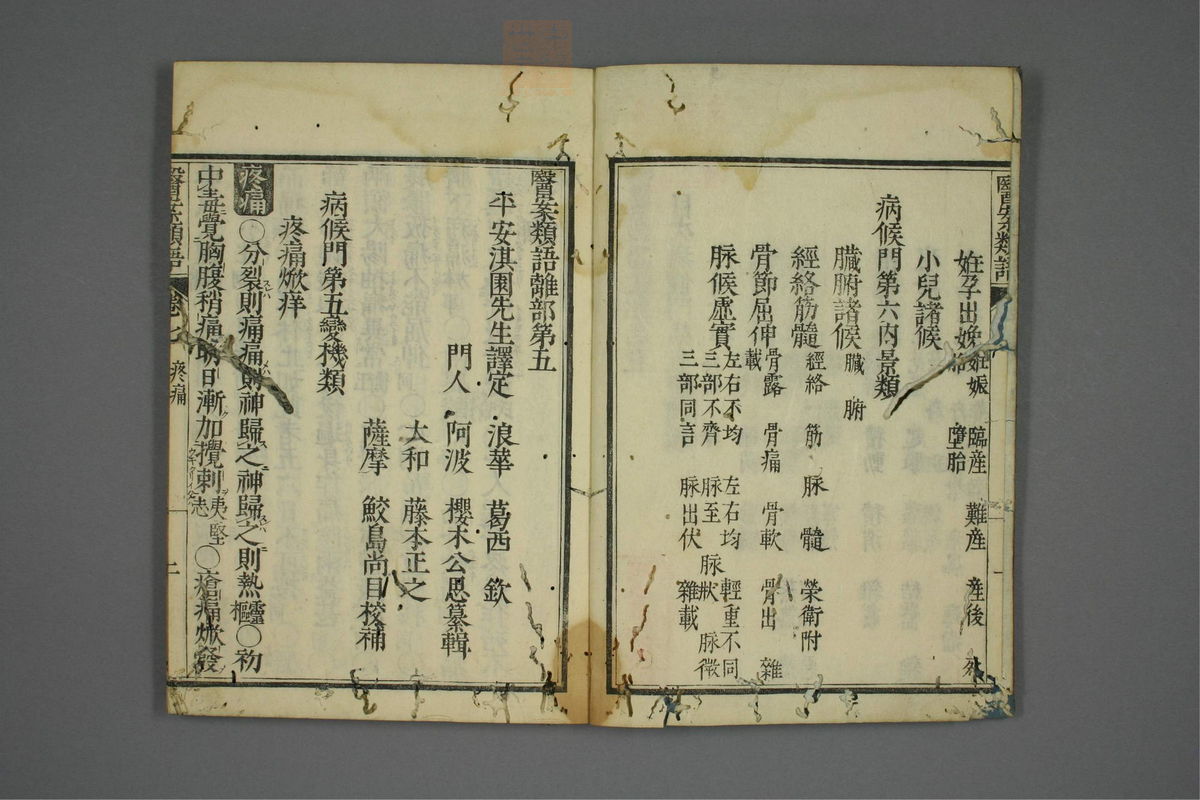 醫案類語
妊孕出娩 妊娠 臨産 難産 産後
胎 墮胎
小兒諸候
病候門第六内景類
臟腑諸候 臟 腑
經絡筋髓 經絡 筋 脉 髓 榮衛附
骨節屈伸 骨露 骨痛 骨軟 骨出 雜
載
脉候虚實 左右不均 左右均 輕重不同
三部不齊 脉至 脉狀 脉徵
三部同言 脉出伏 雜載
醫案類語離部第五
平安淇園先生譯定 浪華 葛西 欽
門人 阿波 櫻木公恩纂輯
大和 藤本正之
薩摩 鮫島尚目校補
病候門第五變機類
疼痛焮痒
疼痛 〇分裂則痛痛則神歸之神歸之則熱靈樞〇初
中毒覺胸腹稍痛明日漸加攪刺夷堅志〇瘡痛焮發
醫案類語 卷七 疼痛 二